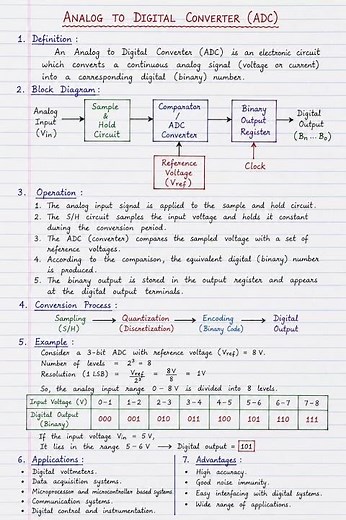 ANALOG TO DIGITAL CONVERTER (ADC)
1. Definition :
An Analog to Digital Converter (ADC) is an electronic circuit
which converts a continuous analog signal (voltage or current)
into a corresponding digital (binary) number.
2. Block Diagram :
Analog Input (Vin)
Sample & Hold Circuit
Comparator / ADC Converter
Binary Output Register
Digital Output (Bn ... B0)
Reference Voltage (Vref)
Clock
3. Operation :
1. The analog input signal is applied to the sample and hold circuit.
2. The S/H circuit samples the input voltage and holds it constant
during the conversion period.
3. The ADC (converter) compares the sampled voltage with a set of
reference voltages.
4. According to the comparison, the equivalent digital (binary) number
is produced.
5. The binary output is stored in the output register and appears
at the digital output terminals.
4. Conversion Process :
Sampling (S/H) → Quantization (Discretization) → Encoding (Binary Code) → Digital Output
5. Example :
Consider a 3-bit ADC with reference voltage (Vref) = 8 V.
Number of levels = 2³ = 8
Resolution (1 LSB) = Vref/2³ = 8V/8 = 1V
So, the analog input range 0 - 8 V is divided into 8 levels.
Input Voltage (V) 0-1 1-2 2-3 3-4 4-5 5-6 6-7 7-8
Digital Output (Binary) 000 001 010 011 100 101 110 111
If the input voltage Vin = 5V,
It lies in the range 5-6 V → Digital output = 101
6. Applications :
• Digital voltmeters.
• Data acquisition systems.
• Microprocessor and microcontroller based systems
• Communication systems.
• Digital control and instrumentation.
7. Advantages :
• High accuracy.
• Good noise immunity.
• Easy interfacing with digital systems.
• Wide range of applications.